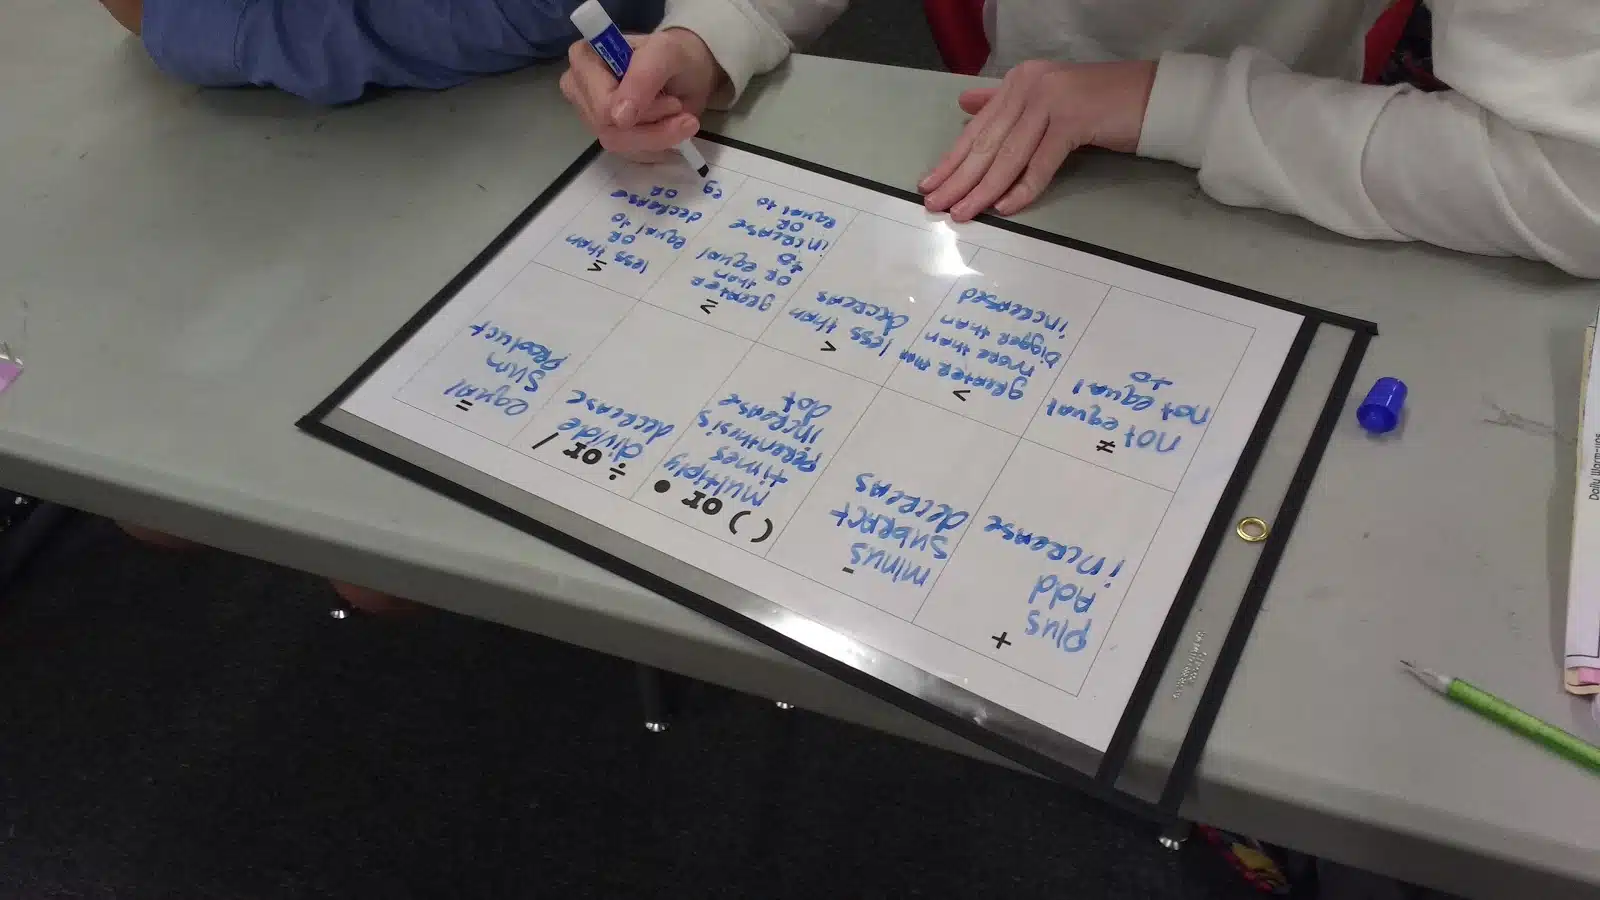 +
plus
Add
increase
-
minus
subract
decreas
( ) or •
multiply
times
perenthesis
increase
dot
÷ or /
divide
decrease
=
equal
Sum
product
≠
not equal
not equal
to
>
greater than
more than
bigger than
increased
<
less than
decreas
≥
greater
than
or equal
to
increase
OR
equal to
≤
less than
OR
equal to
decrease
OR
eq
Daily Warm-ups